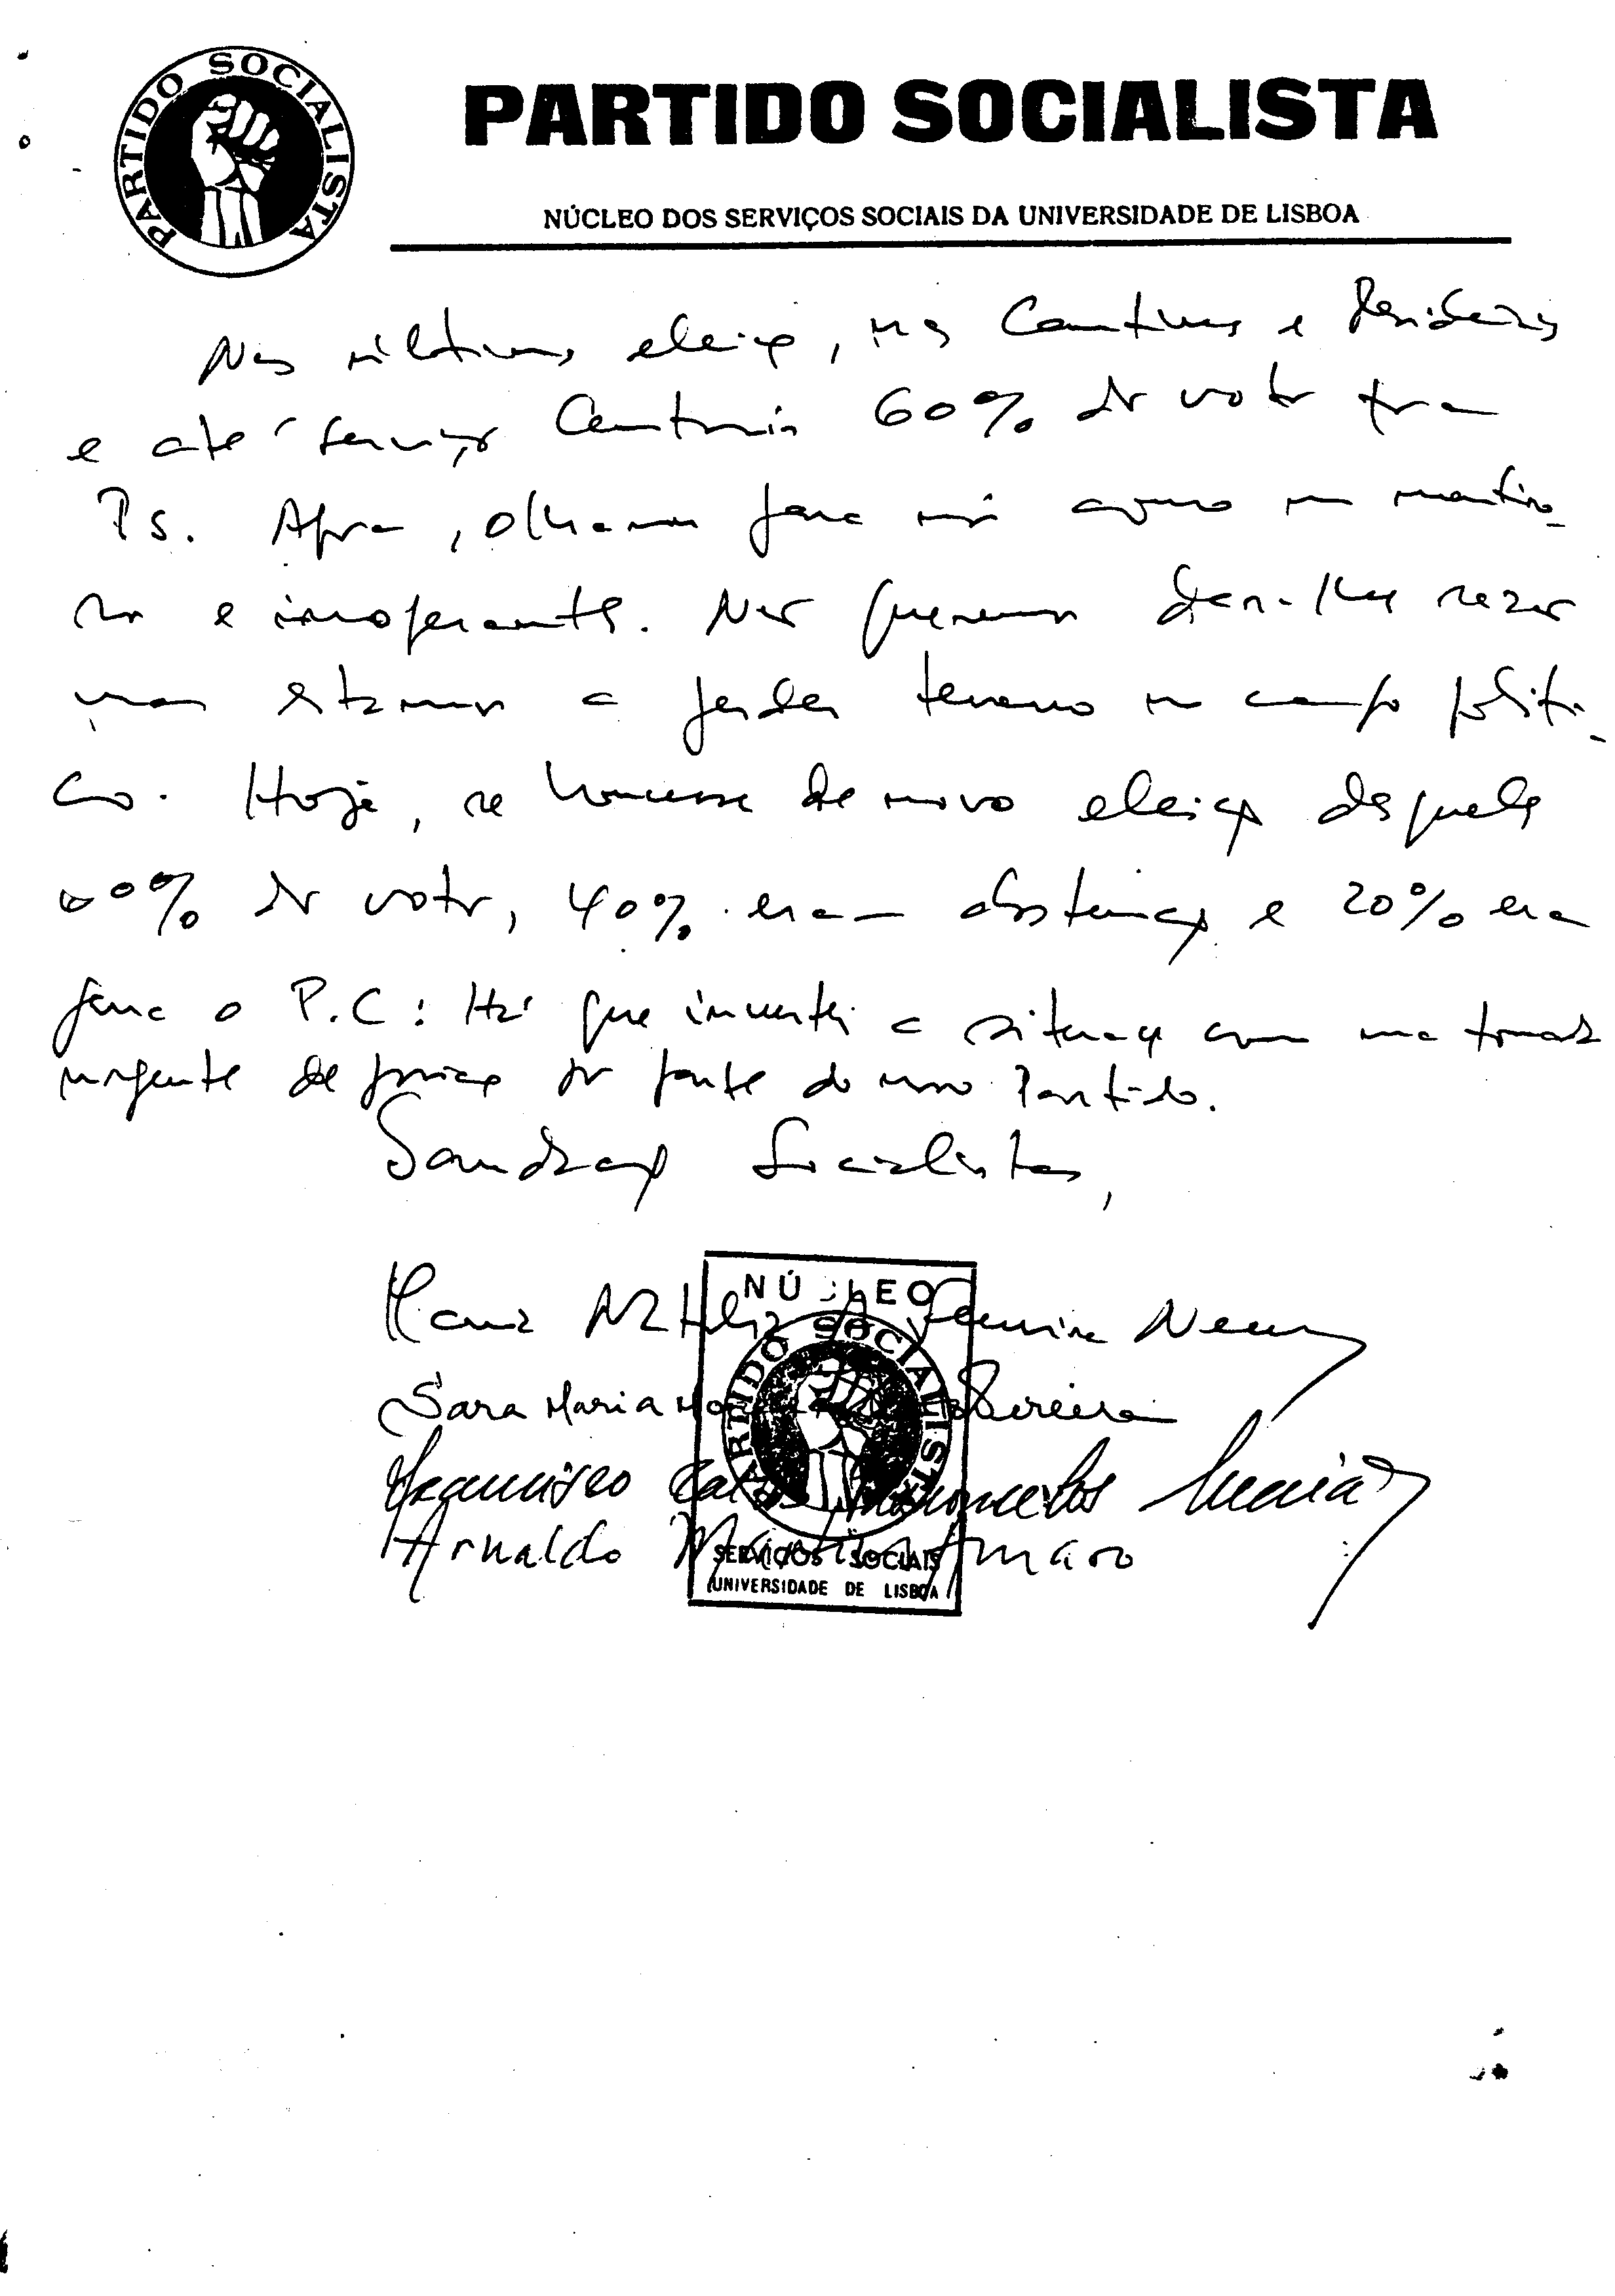 PARTIDO SOCIALISTA
PARTIDO SOCIALISTA
NÚCLEO DOS SERVIÇOS SOCIAIS DA UNIVERSIDADE DE LISBOA
Nas últimas eleições, nas Cantinas e Residências
e até Serviços Centrais 60% dos votos foram
PS. Agora, olham para nós como uns mentiro-
sos e inoperantes. Não queremos dar-lhes razão
mas estamos a perder terreno no campo políti-
co. Hoje, se houvesse de novo eleições daqueles
60% dos votos, 40% eram abstenções e 20% era
para o P.C: Há que inverter a situação com uma tomada
urgente de posição por parte do nosso Partido.
Saudações Socialistas,
NÚCLEO
PARTIDO SOCIALISTA
Maria Ferreira Neves
Sara Maria Pereira
Francisco Vasconcelos
Arnaldo Amaro
SERVIÇOS SOCIAIS
UNIVERSIDADE DE LISBOA